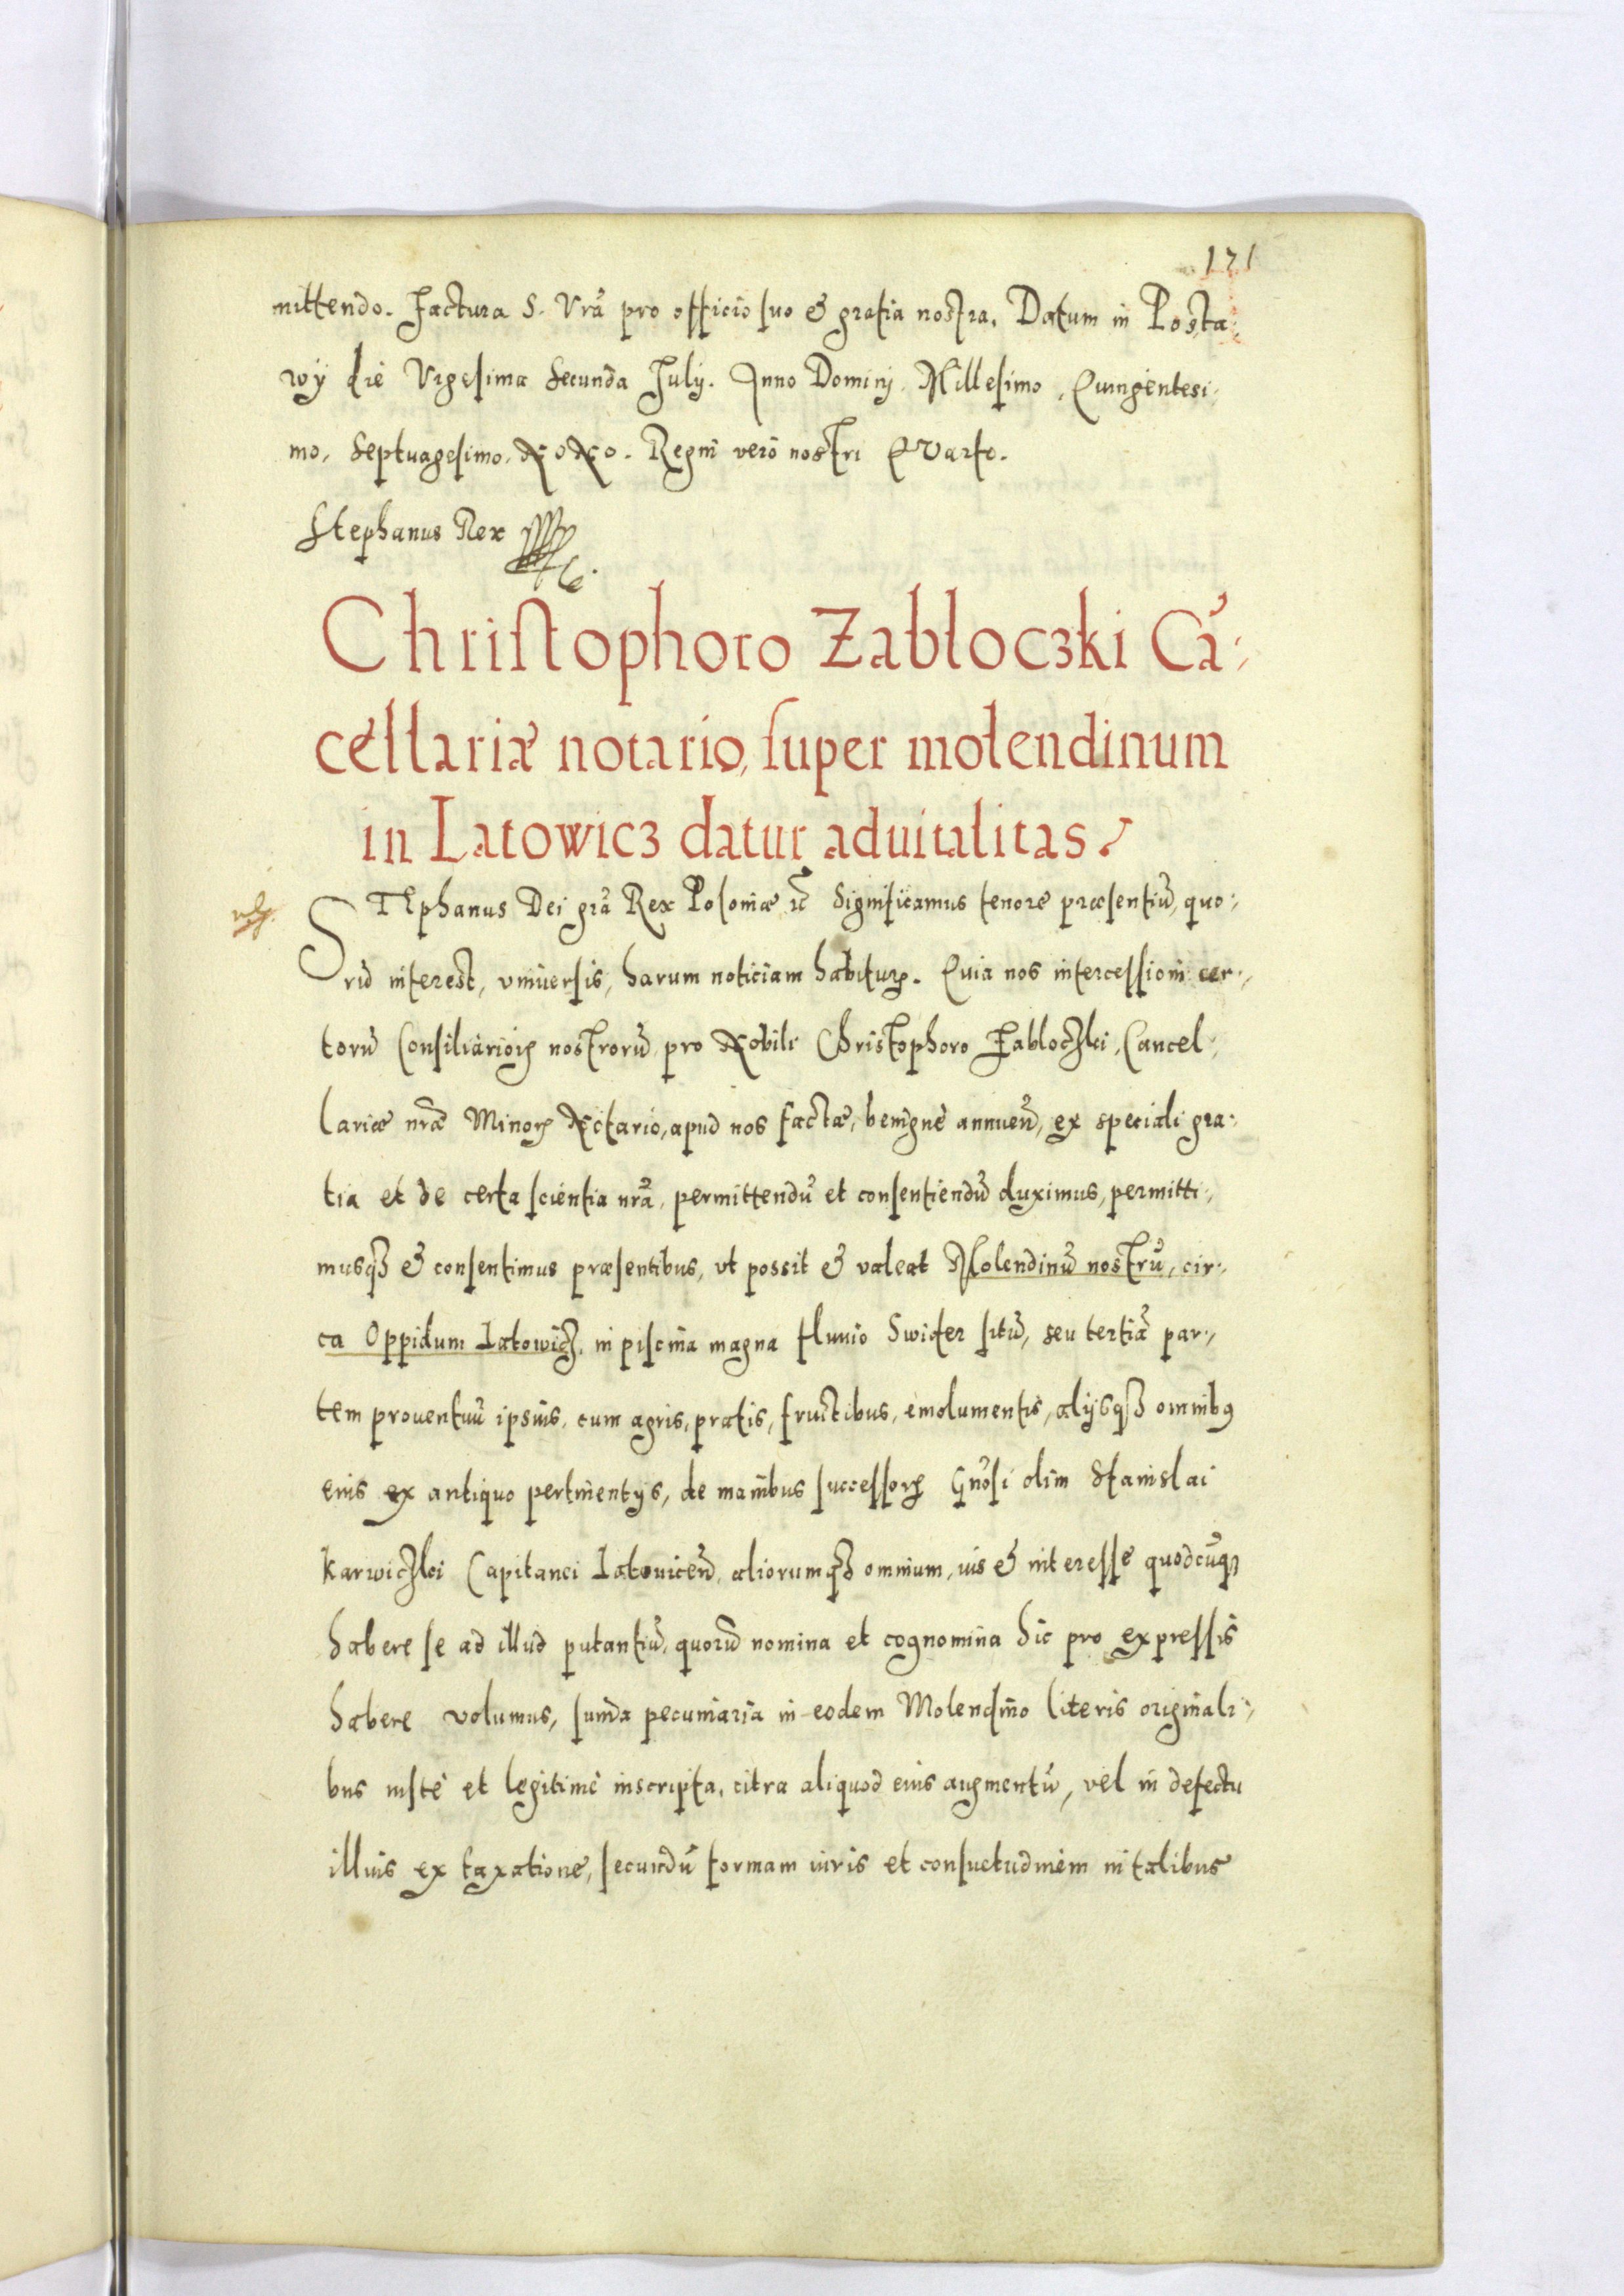 171
mittendo. Factura S. Vrã pro officio suo & gratia nostra. Datum in Posta-
wy die Vigesima Secunda July. Anno Dominj Millesimo, Quingentesi-
mo, Septuagesimo, NoNo. Regni verò nostri QVarto.
Stephanus Rex
Christophoro Zabłoczki Cã-
cellariæ notario, super molendinum
in Latowicz datur advitalitas.
STEphanus Dei grã Rex Poloniæ Significamus tenore præsentiũ, quo-
rũ interest, vniuersis, harum noticiam habituꝝ. Quia nos intercessioni cer-
torũ Consiliarioꝝ nostrorũ pro Nobili Christophoro Zabloczki, Cancel-
lariæ nrã Minoꝝ Notario, apud nos factæ, benignè annueñ, ex speciali gra-
tia et de certa scientia nrã, permittendũ et consentiendũ duximus, permitti-
musqꝫ & consentimus præsentibus, vt possit & valeat Molendinũ nostrũ, cir-
ca Oppidum Latowicz, in piscina magna fluuio Swider sitũ, seu tertiã par-
tem prouentuũ ipsius, cum agris, pratis, fructibus, emolumentis, alijsqꝫ omnibꝰ
eius ex antiquo pertinentijs, de manibus successoꝝ Gñosi olim Stanislai
Karwiczki Capitanei Latouiceñ, aliorumqꝫ omnium, ius & interesse quodcũqꝫ
habere se ad illud putantiũ, quorũ nomina et cognomina hic pro expressis
habere volumus, sum̃a pecuniaria in eodem Molendino literis originali-
bus iustè et legitimè inscripta, citra aliquod eius augmentũ, vel in defectu
illius ex taxatione, secundũ formam iuris et consuetudinem in talibus